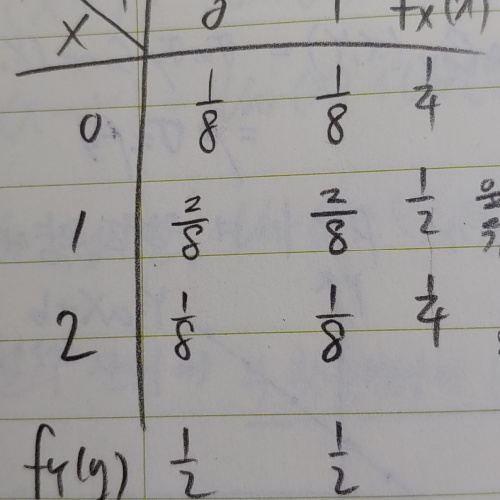 x 1 fx(x)
0 1/8 1/8 1/4
1 2/8 2/8 1/2
2 1/8 1/8 1/4
fy(y) 1/2 1/2